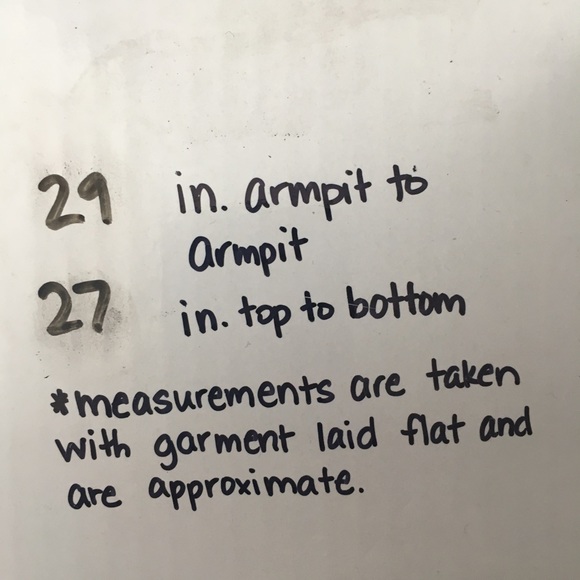 29 in. armpit to
armpit
27 in. top to bottom
*measurements are taken
with garment laid flat and
are approximate.